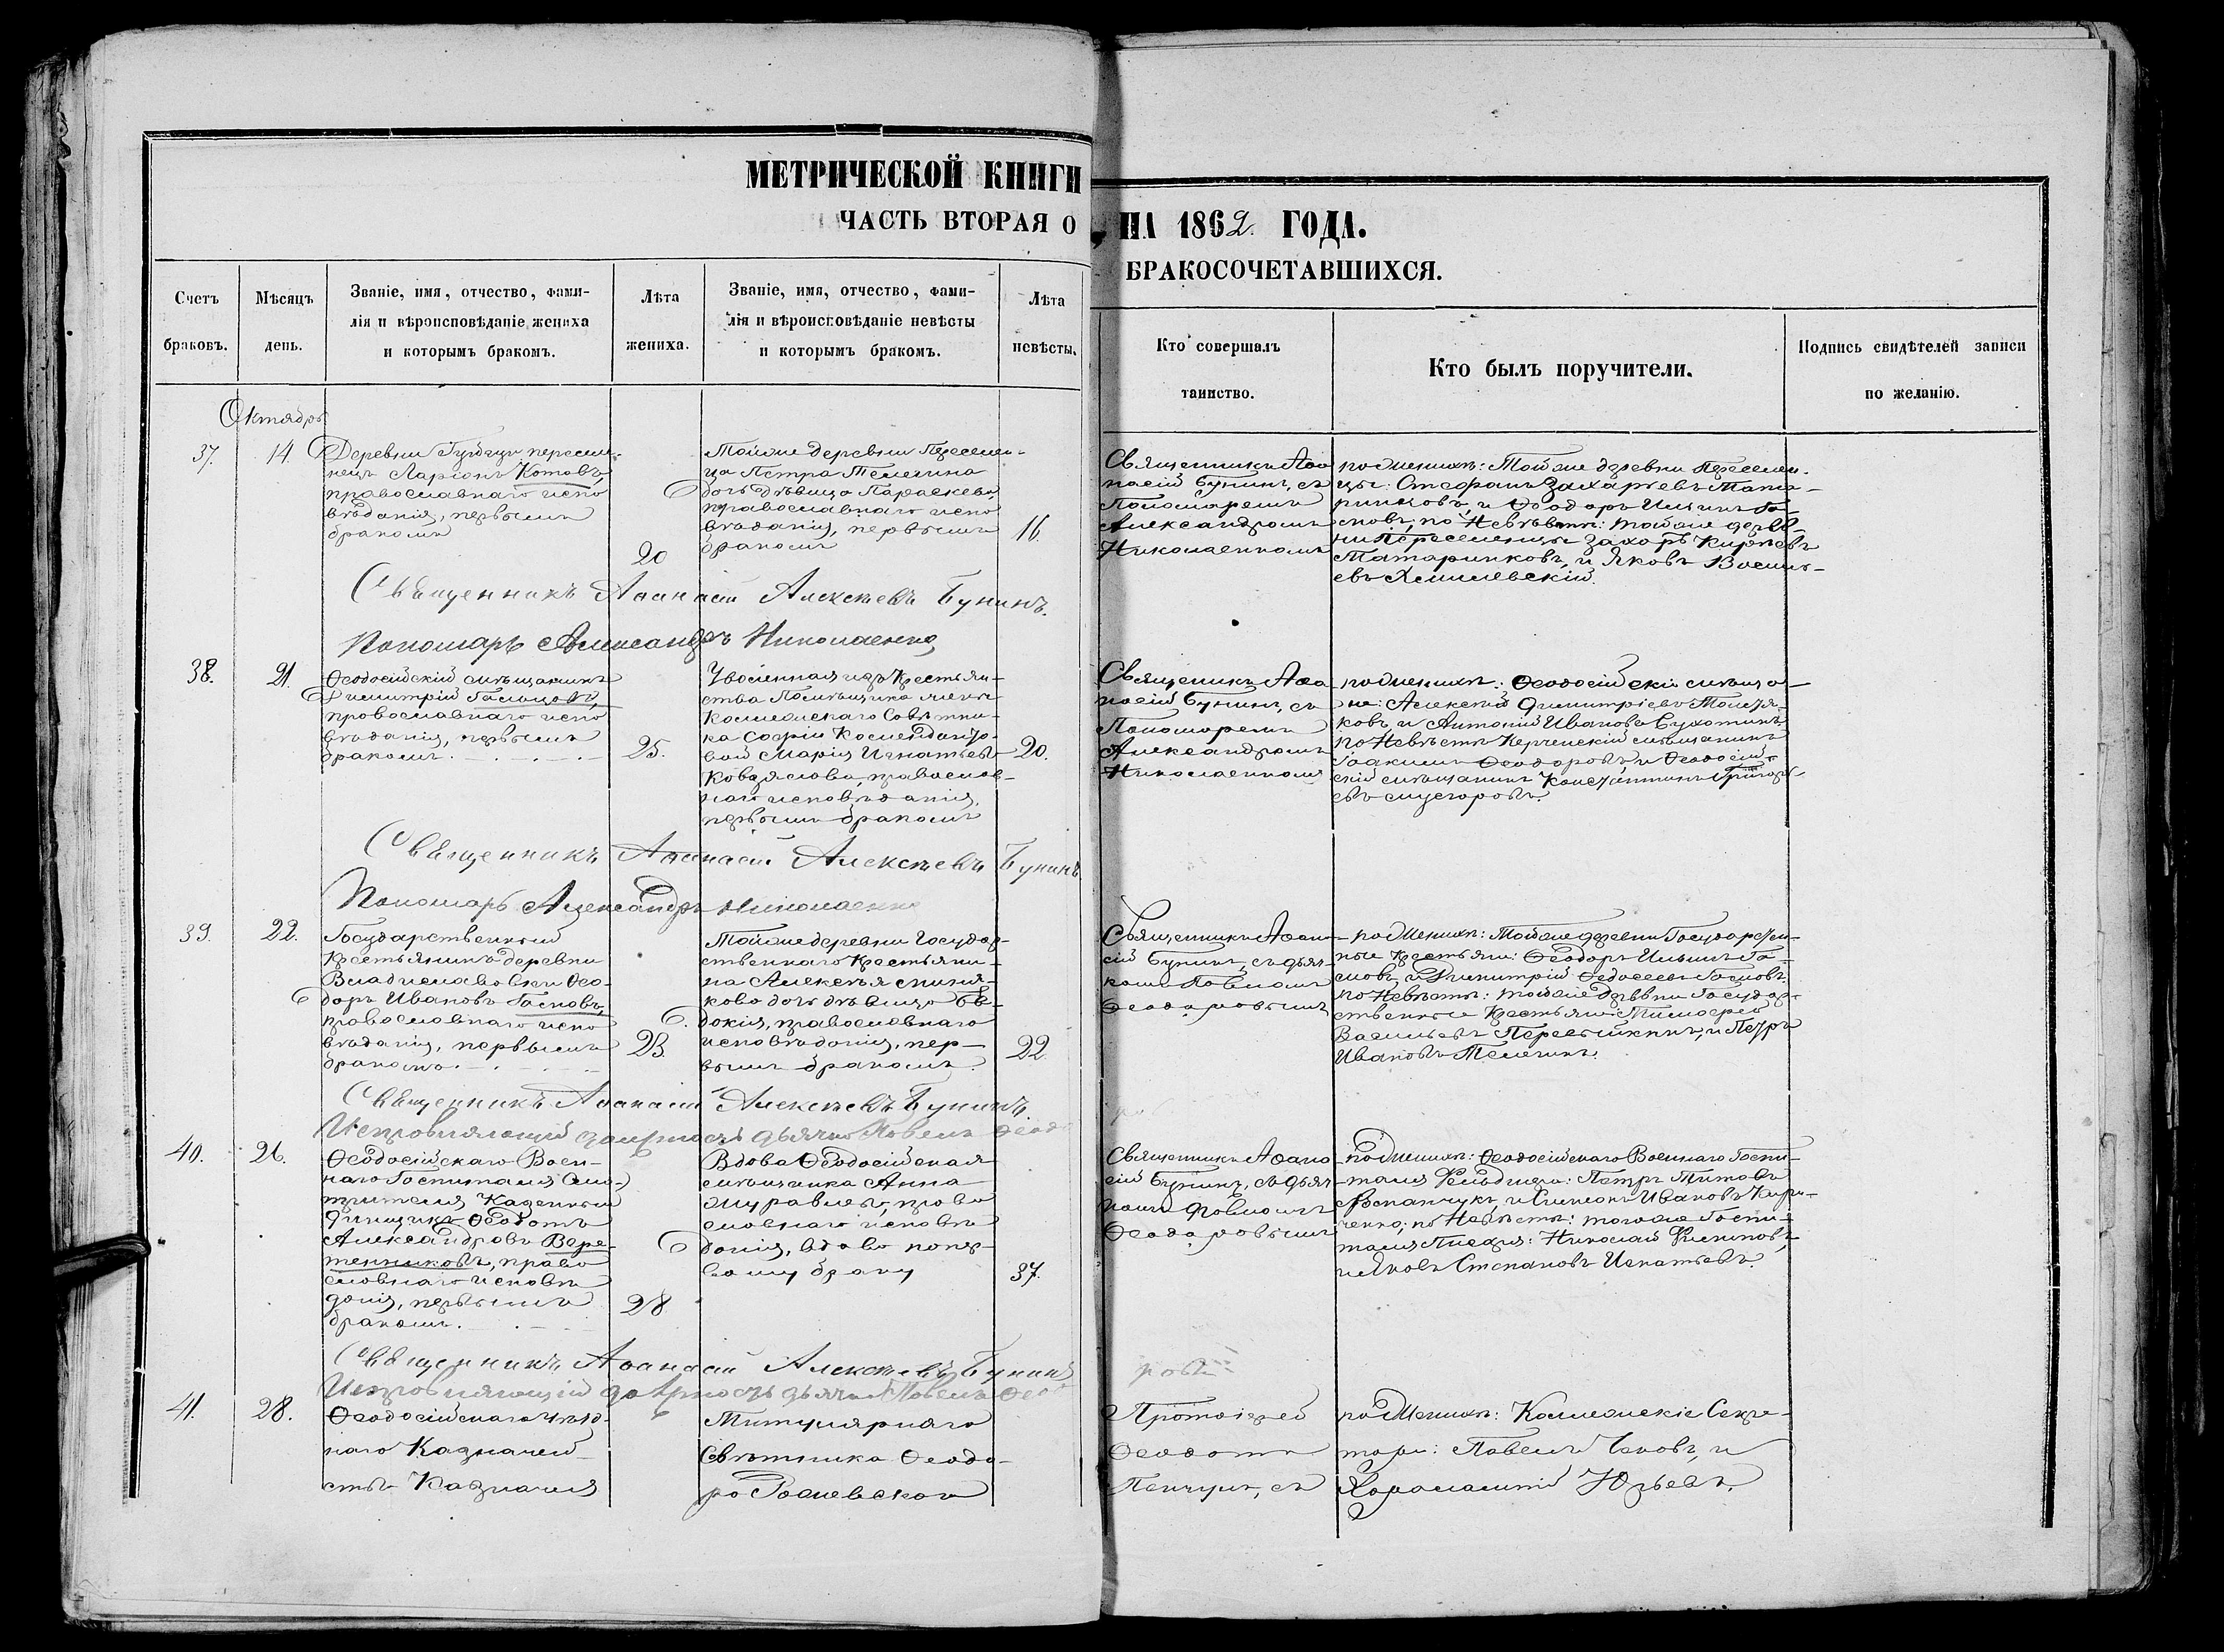 МЕТРИЧЕСКОЙ КНИГИ
НА 1862 ГОДА.
ЧАСТЬ ВТОРАЯ О
БРАКОСОЧЕТАВШИХСЯ.
Счетъ
браковъ.
Мѣсяцъ
день.
Званіе, имя, отчество, фами-
лія и вѣроисповѣданіе жениха
и которымъ бракомъ.
Лѣта
жениха.
Званіе, имя, отчество, фами-
лія и вѣроисповѣданіе невѣсты
и которымъ бракомъ.
Лѣта
невѣсты.
Кто совершалъ
таинство.
Кто былъ поручители.
Подпись свидѣтелей записи
по желанію.
Октябрь
37.
14.
Деревни переселе-
нецъ Ларіонъ Котовъ,
православнаго испо
вѣданія, первымъ
бракомъ
20
Тойже деревни Переселен-
ца Петра Телегина
дочь дѣвица Параскева,
православнаго испо
вѣданія, первымъ
бракомъ
16.
Священникъ Аѳа
насій Бунинъ, съ
Пономаремъ
Александромъ
Николаенкомъ
по Женихѣ: Тойже деревни Переселен-
цы: Стефанъ Захарьевъ Тата-
ринковъ, и Ѳеодоръ Ильинъ Га-
сновъ, по Невѣстѣ: тойже дерев-
ни Переселенцы Захаръ Кирѣевъ
Татаринковъ, и Яковъ Василь-
евъ Хмилевскій.
Священникъ Аѳанасій Алексѣевъ Бунинъ.
Пономарь Александръ Николаенко
38.
21.
Ѳеодосійскій мѣщанинъ
Димитрій Гальцовъ,
православнаго испо
вѣданія, первымъ
бракомъ.
25.
Уволенная изъ Крестьян-
ства Помѣщика жены
Коллежскаго Совѣтни-
ка Софіи
вой Марія Игнатьева
православ-
наго исповѣданія,
первымъ бракомъ
20.
Священникъ Аѳа
насій Бунинъ, съ
Пономаремъ
Александромъ
Николаенкомъ
по Женихѣ: Ѳеодосійскіе мѣща-
не: Алексѣй Димитріевъ
ковъ и Антоній Ивановъ Сухотинъ
по Невѣстѣ Керченскій мѣщанинъ
Іоакимъ Ѳеодоровъ, и Ѳеодосій-
скій мѣщанинъ Константинъ Григорь-
евъ
Священникъ Аѳанасій Алексѣевъ Бунинъ
Пономарь Александръ Николаенко
39.
22.
Государственный
Крестьянинъ деревни
Владиславовки Ѳео-
доръ Ивановъ Гасновъ,
православнаго испо
вѣданія, первымъ
бракомъ.
23.
Тойже деревни Государ-
ственнаго Крестьяни-
на Алексѣя
кова дочь дѣвица Ев-
докія, православнаго
исповѣданія, пер-
вымъ бракомъ.
22.
Священникъ Аѳана-
сій Бунинъ, съ дьяч-
комъ Павломъ
Ѳеодоровымъ
по Женихѣ: Тойже деревни Государствен-
ные Крестьяне: Ѳеодоръ Ильинъ Га-
сновъ, и Димитрій Ѳедосеевъ Гасновъ
по Невѣстѣ: тойже деревни Государ-
ственные Крестьяне
Васильевъ и Петръ
Ивановъ Телегинъ.
Священникъ Аѳанасій Алексѣевъ Бунинъ.
Исправляющій должность дьячка Павелъ Ѳеодо
ро
40.
26.
Ѳеодосійскаго Воен-
наго Госпиталя Смо-
трителя Казенный
Динщикъ Ѳеодотъ
Александровъ Вере-
тенниковъ, право
славнаго исповѣ
данія, первымъ
бракомъ.
28
Вдова Ѳеодосійская
мѣщанка Анна
Журавлева, право
славнаго исповѣ
данія, вдова по пер-
вому браку
37.
Священникъ Аѳана
сій Бунинъ, съ дьяч
комъ Павломъ
Ѳеодоровымъ
по Женихѣ: Ѳеодосійскаго Военнаго Госпи-
таля Фельдшера: Петръ Титовъ
и Симеонъ Ивановъ Кири-
ченко; по Невѣстѣ: тогоже Госпи-
таля Писаря: Николай Филиповъ,
и Яковъ Степановъ Игнатьевъ.
Священникъ Аѳанасій Алексѣевъ Бунинъ
Исправляющій должность дьячка Павелъ Ѳео
ровъ
41.
28.
Ѳеодосійскаго Уѣзд-
наго Казначей-
ства Казначея
Титулярнаго
Совѣтника Ѳеодо-
ра
Протоіерей
Ѳеодотъ
съ
по Женихѣ: Коллежскіе Секре-
тари: Павелъ и
Харалампій Юрьевъ.